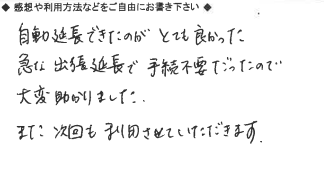 ◆ 感想や利用方法などをご自由にお書き下さい ◆
自動延長できたのが とても良かった
急な 出張延長で 手続不要だったので
大変助かりました.
また 次回も 利用させていただきます.